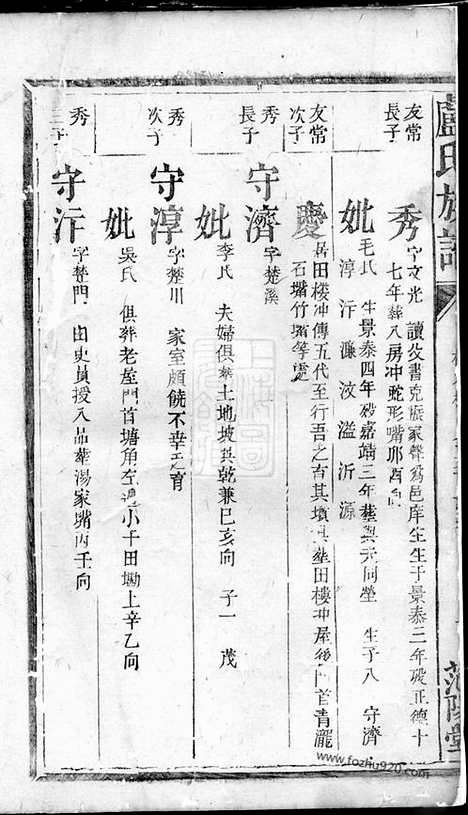 盧氏族譜
范陽堂
友常
長子
秀
字文光 讀父書克振家聲爲邑庠生生于景泰三年歿正德十
七年葬八房冲蛇形嘴邜酉向
妣
毛氏 生景泰四年歿嘉靖三年葬與夫同塋 生子八 守濟
淳汗濂汶溢沂源
友常
次子
慶
居田樓冲傳五代至行吾乏育其墳具塟田樓冲屋後 首青龍
石嘴竹塝等處
秀
長子
守濟
字楚溪
妣
李氏 夫婦俱葬土地坡其乾兼巳亥向 子一 茂
秀
次子
守淳
字楚川 家室頗饒不幸乏育
妣
吳氏 俱葬老屋門首塘角左邊小千田塝上辛乙向
秀
三子
守汗
字楚門 由吏員授八品葬湯家嘴丙壬向
www.fozhu920.com